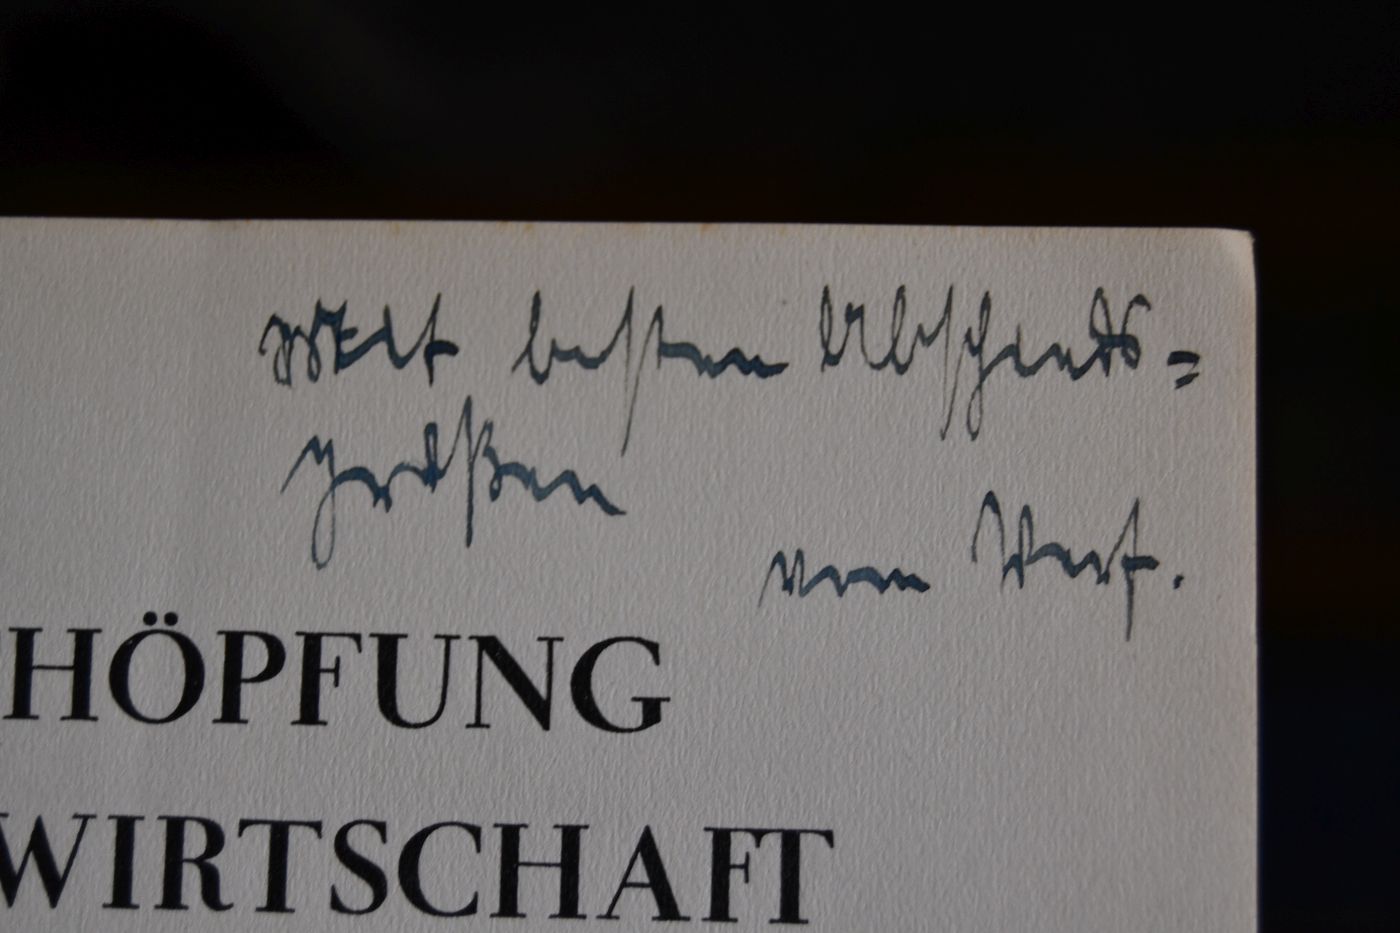 Mit besten Abschieds=
grüßen
vom Verf.
HÖPFUNG
WIRTSCHAFT